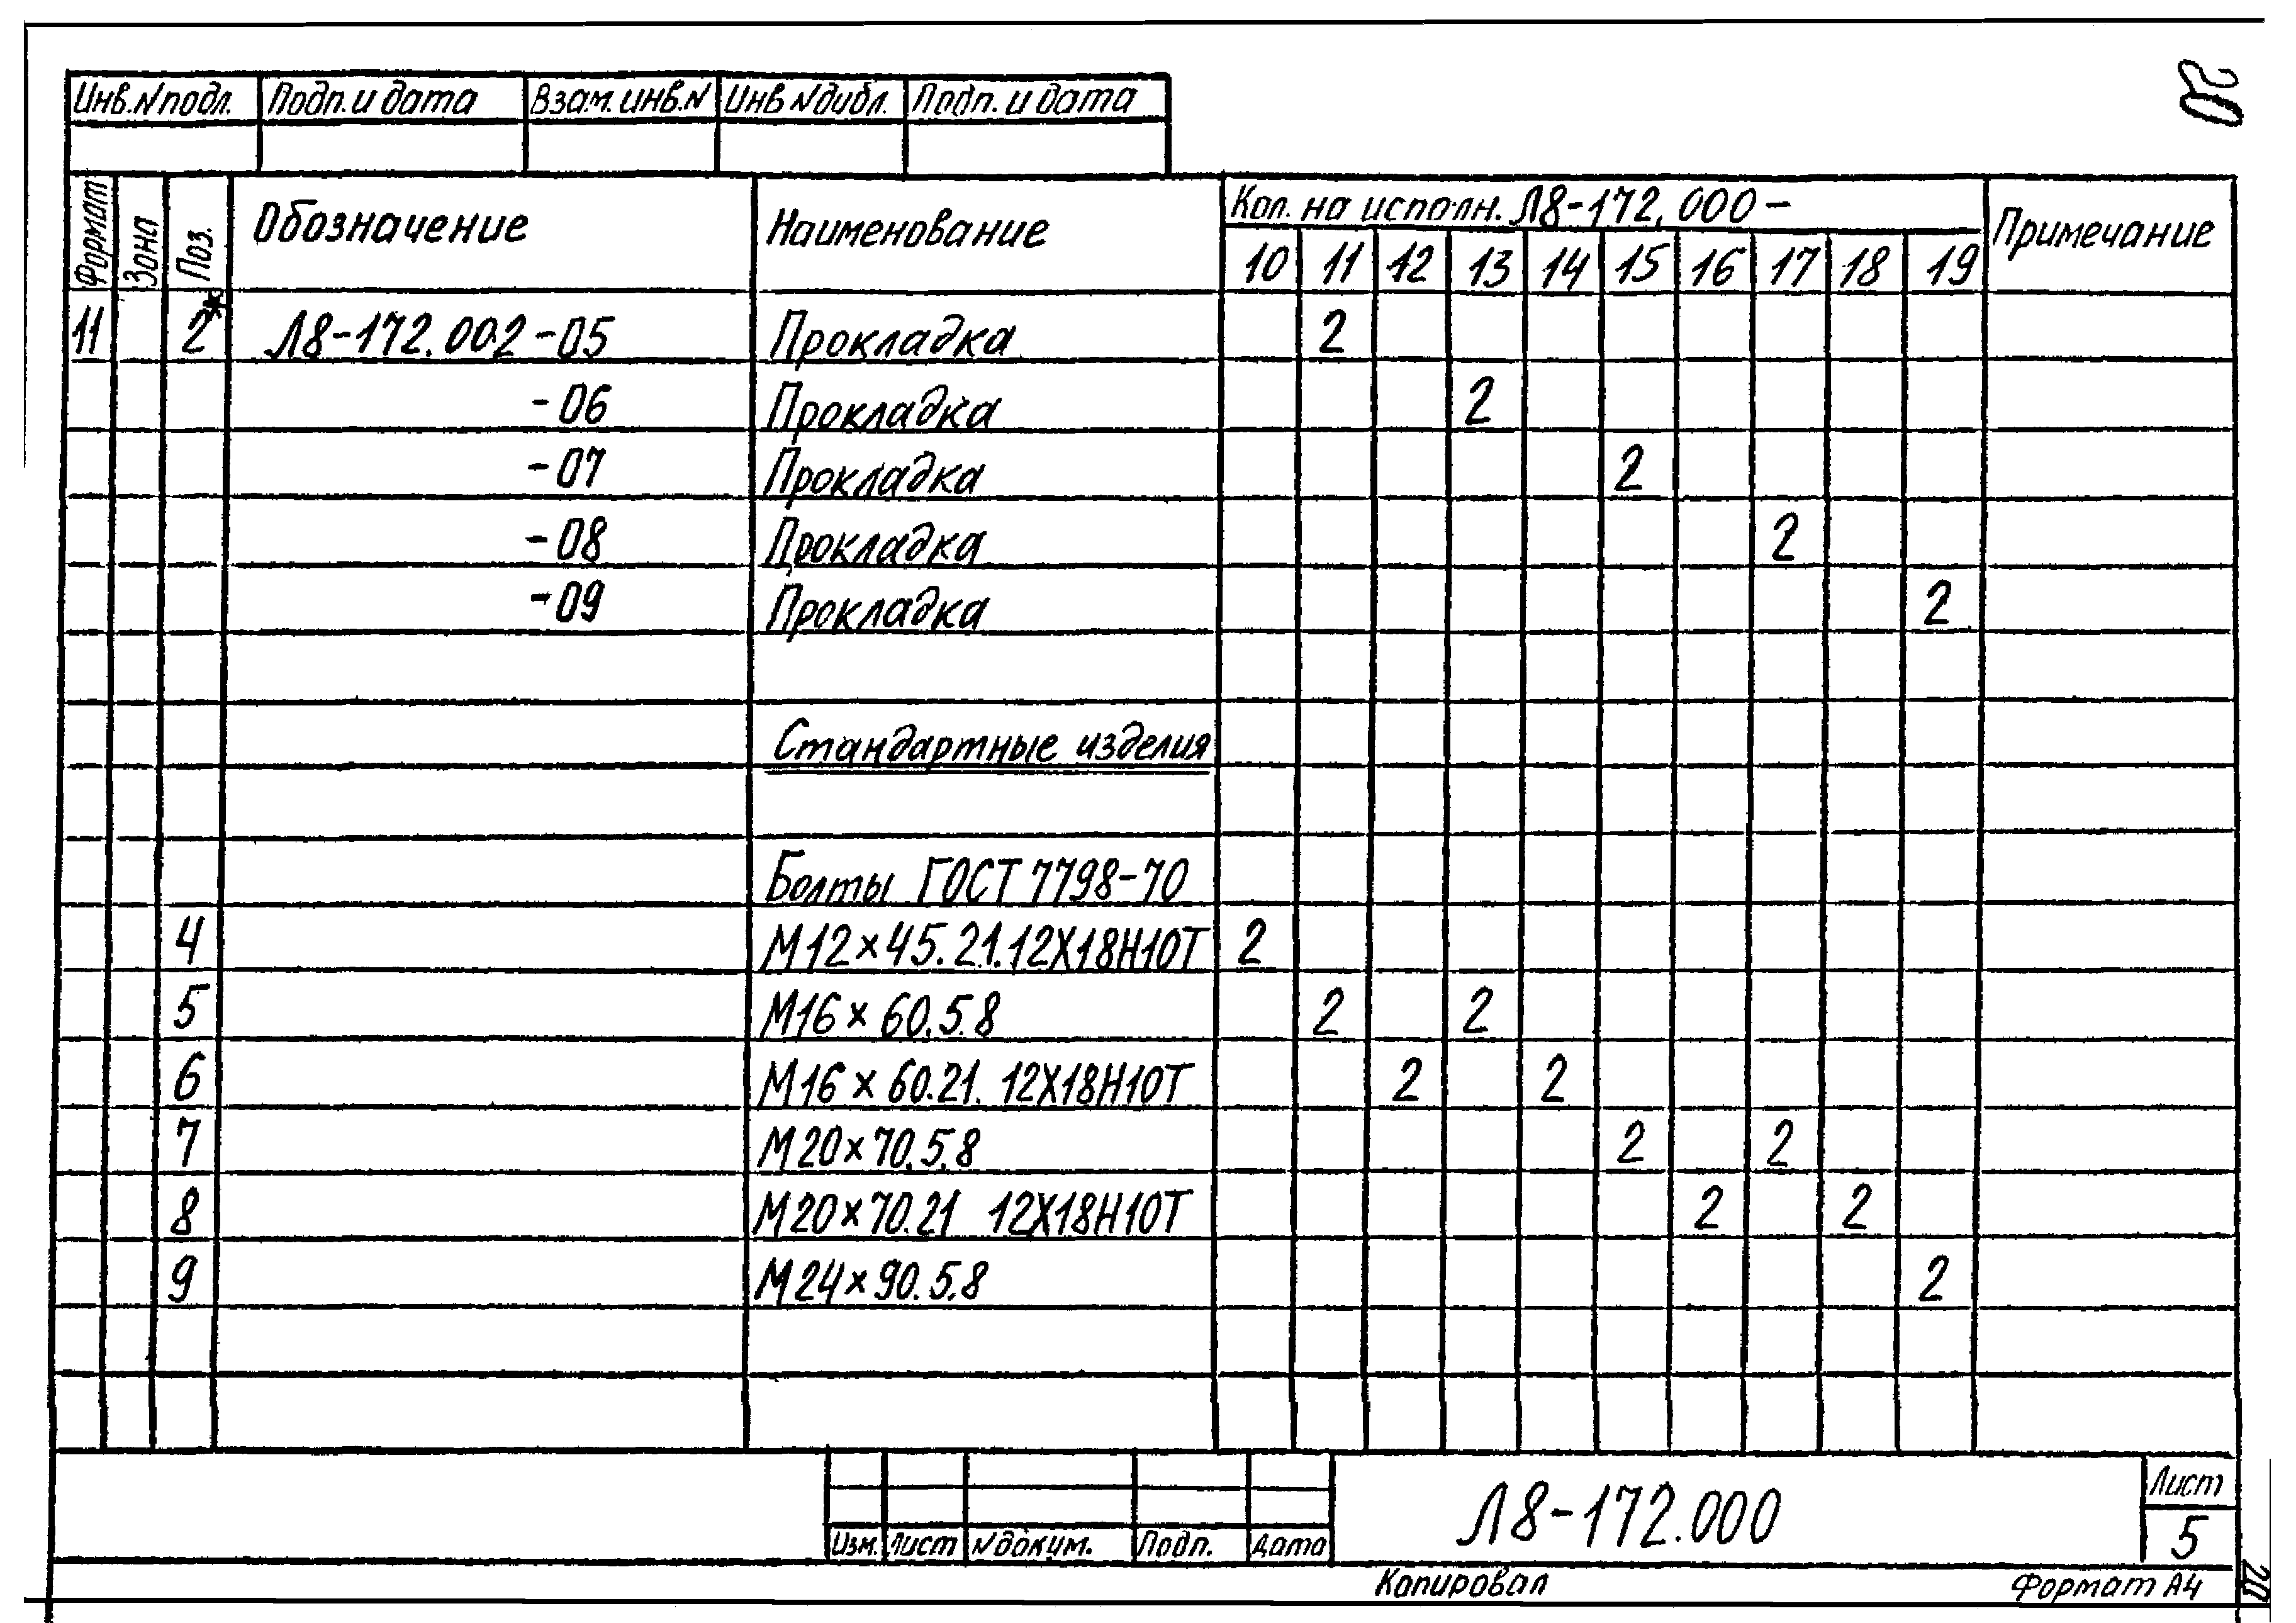 20
Инв.N подл. Подп. и дата Взам. инв.N Инв N дубл. Подп. и дата
Формат Зона Поз. Обозначение Наименование Кол. на исполн. Л8-172.000- Примечание
10 11 12 13 14 15 16 17 18 19
11 2* Л8-172.002-05 Прокладка 2
-06 Прокладка 2
-07 Прокладка 2
-08 Прокладка 2
-09 Прокладка 2
Стандартные изделия
Болты ГОСТ 7798-70
4 М12×45.21.12Х18Н10Т 2
5 М16×60.5.8 2 2
6 М16×60.21.12Х18Н10Т 2 2
7 М20×70.5.8 2 2
8 М20×70.21 12Х18Н10Т 2 2
9 М24×90.5.8 2
Изм. Лист N докум. Подп. Дата Л8-172.000 Лист 5
Копировал Формат А4
20